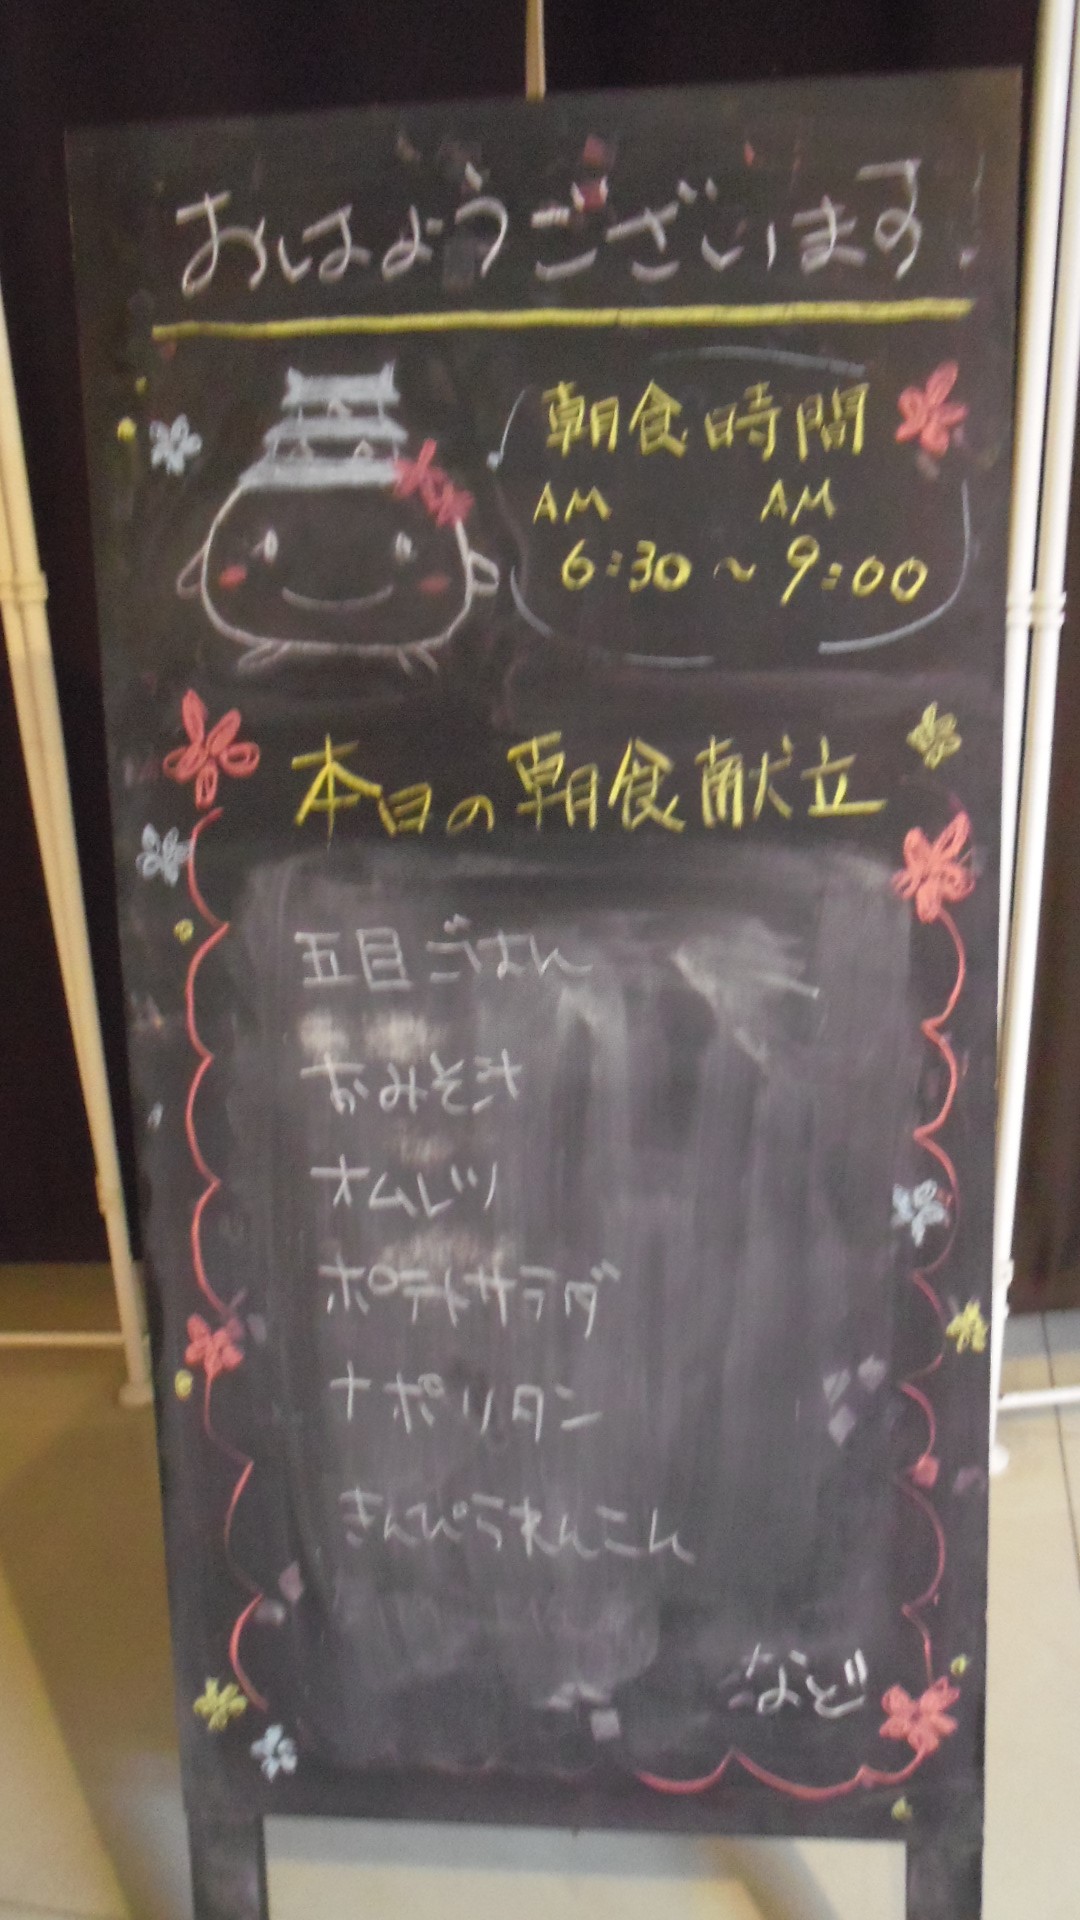 おはようございます
朝食時間
AM AM
6:30～9:00
本日の朝食献立
五目ごはん
おみそ汁
オムレツ
ポテトサラダ
ナポリタン
きんぴられんこん
など